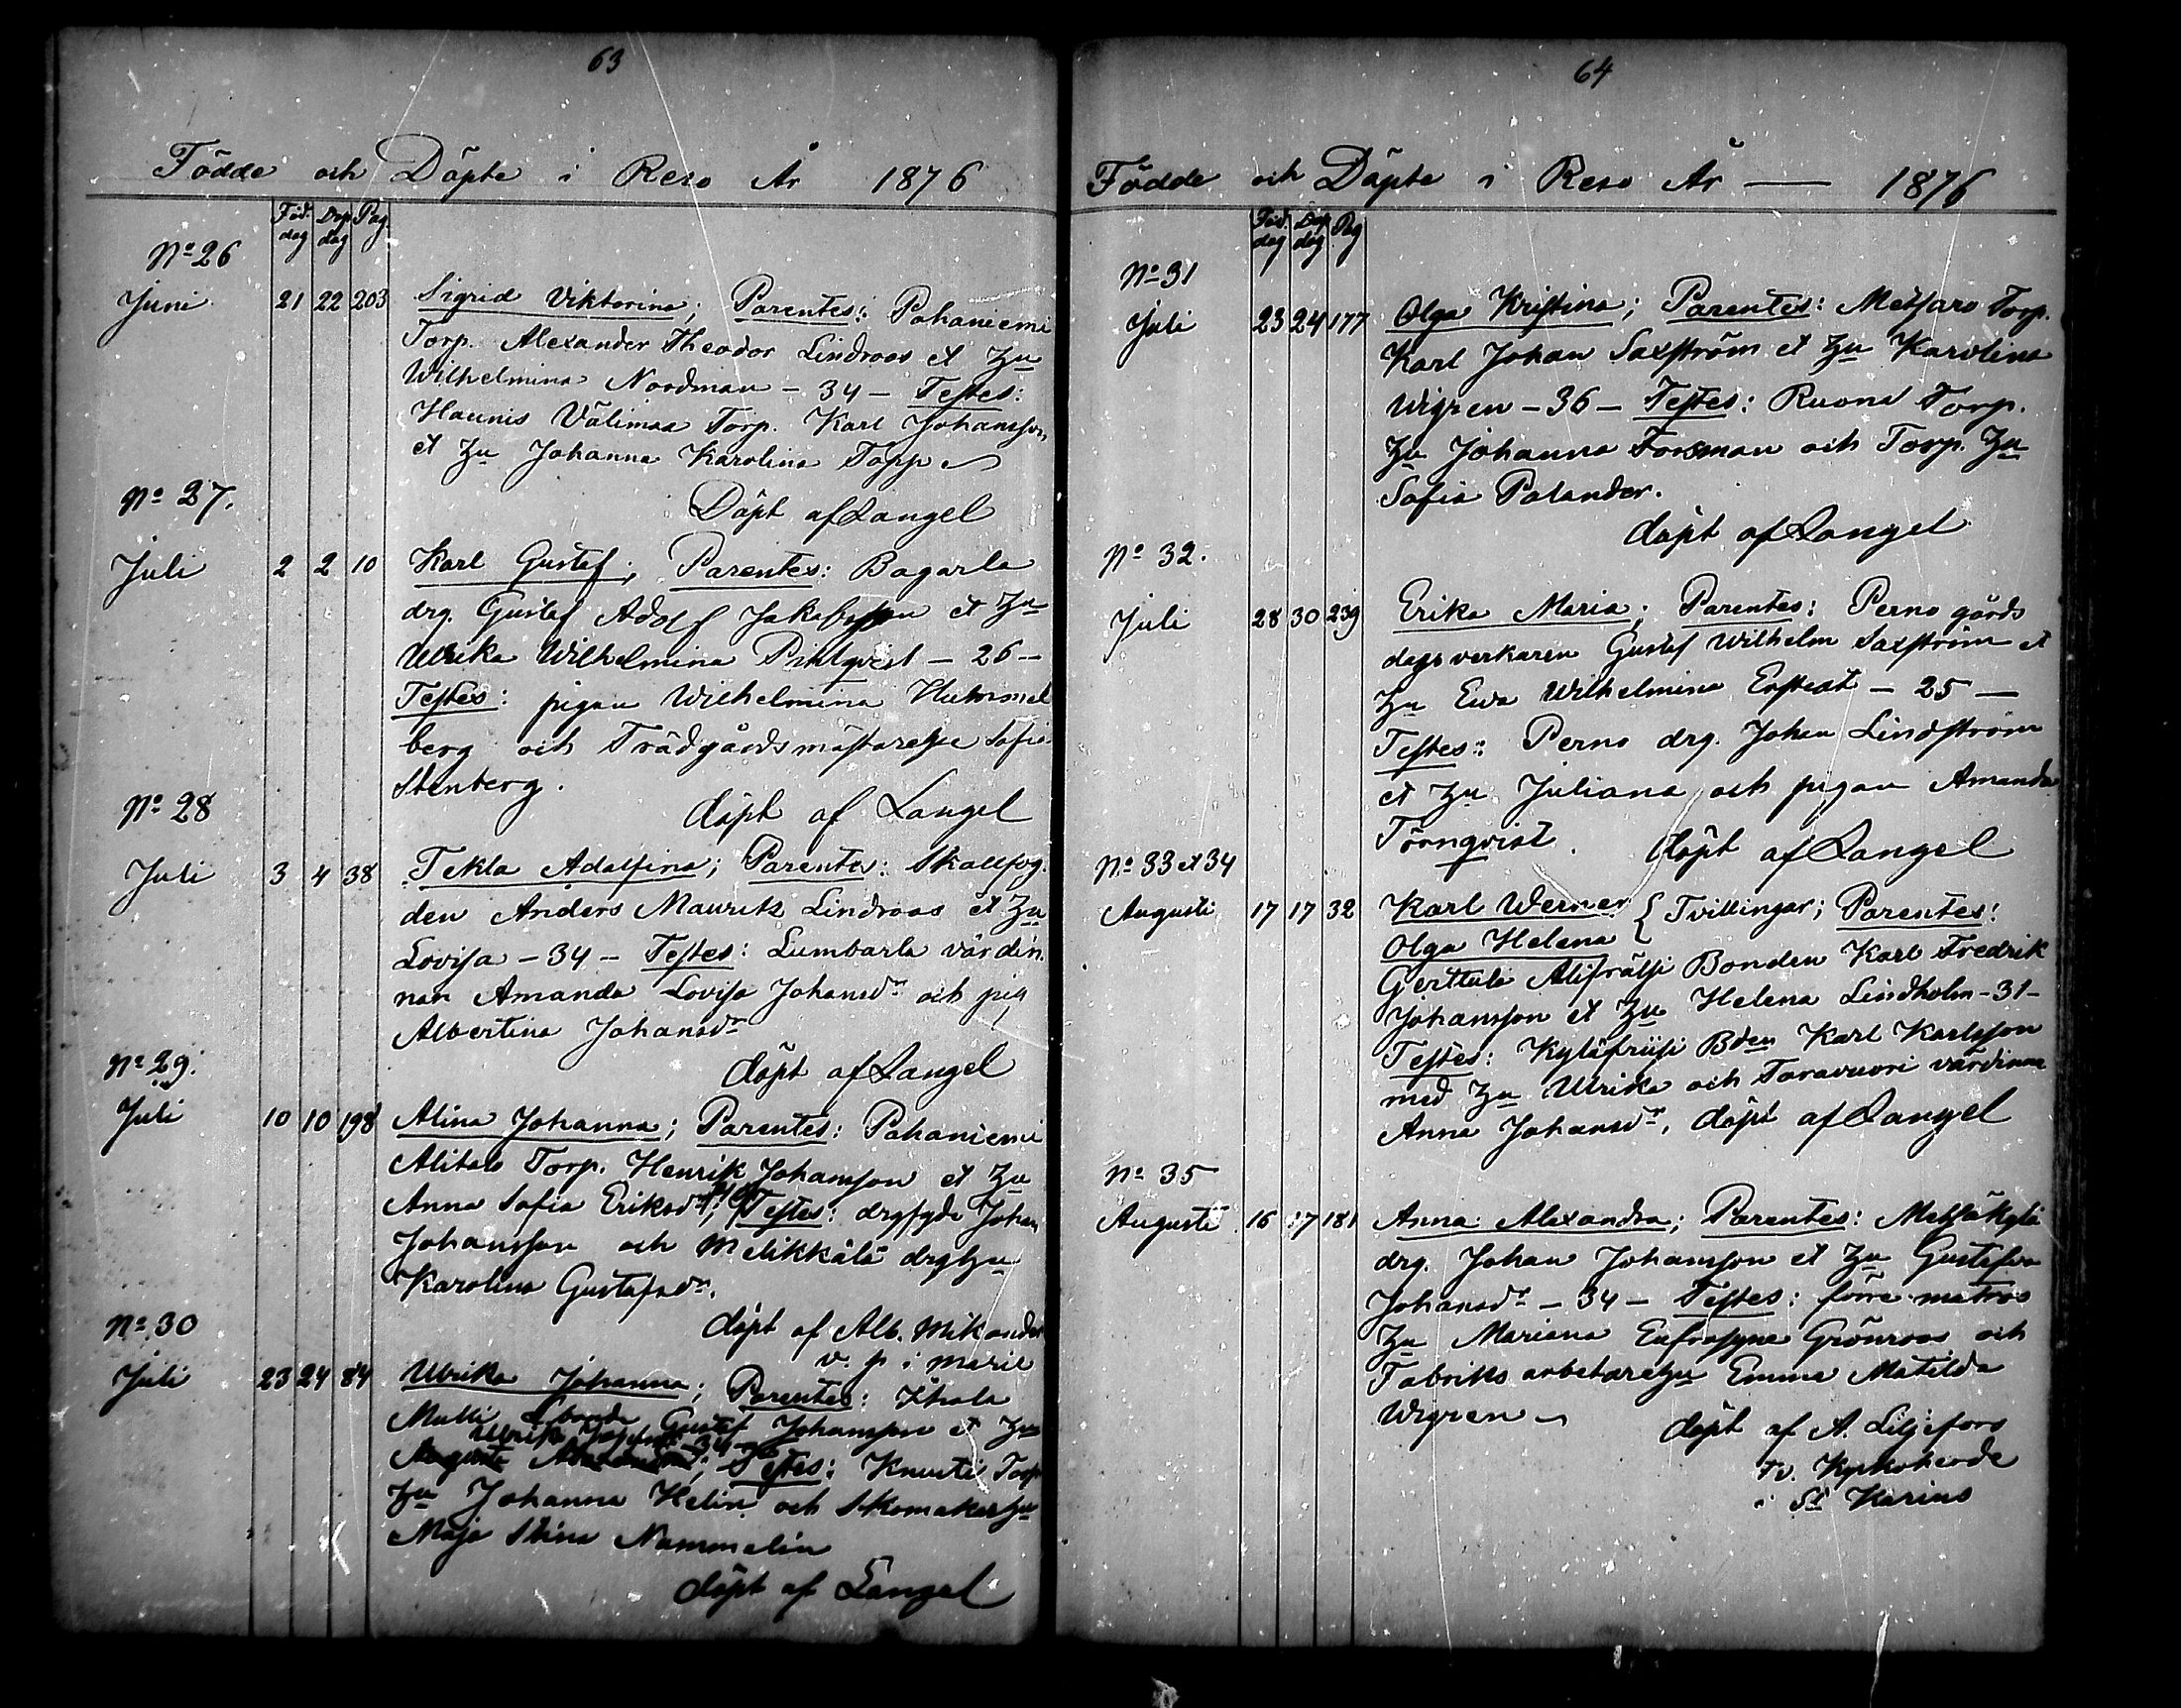 63
Födde och Döpte i Reso År 1876
Föd. dag Dop dag Pag.
No 26
Juni 21 22 203 Sigrid Viktorina; Parentes: Pahaniemi
Torp. Alexander Theodor Lindroos et hu
Wilhelmina Nordman – 34 – Testes:
Haunis Välimaa Torp. Karl Johansson
et hu Johanna Karolina Topp
Döpt af Langel
No 27.
Juli 2 2 10 Karl Gustaf; Parentes: Bagarla
drg. Gustaf Adolf Jakobsson et hu
Ulrika Wilhelmina Pihlqvist – 26 –
Testes: pigan Wilhelmina Hummel
berg och Trädgårdsmästarehu Sofia
Stenberg.
döpt af Langel
No 28
Juli 3 4 38 Tekla Adolfina; Parentes: Skallfog
den Anders Maurits Lindroos et hu
Lovisa – 34 – Testes: Lumbarla värdin
nan Amanda Lovisa Johansdr och pig
Albertina Johansdr
döpt af Langel
No 29.
Juli 10 10 198 Alina Johanna; Parentes: Pahaniemi
Alitalo Torp. Henrik Johansson et hu
Anna Sofia Eriksdr; Testes: drgfygde Johan
Johansson och Mälikkälä drghu
Karolina Gustafsdr.
döpt af Alb. Mikander
v. p i Marie
No 30
Juli 23 24 84 Ulrika Johanna; Parentes: Ihala
Mulli Gustaf Johansson et hu
Ulrika – 34 –
Testes: Knuuti Torp
hu Johanna Helin och Skomakarhu
Maja Stina Nummelin
döpt af Langel
64
Födde och Döpte i Reso År — 1876
Föd. dag Dop dag Pag
No 31
Juli 23 24 177 Olga Kristina; Parentes: Metsaro Torp.
Karl Johan Saxström et hu Karolina
Wigren – 36 – Testes: Ruona Torp.
hu Johanna Forsman och Torp. hu
Sofia Palander.
döpt af Langel
No 32.
Juli 28 30 239 Erika Maria; Parentes: Perno gårds
dagsverkaren Gustaf Wilhelm Saxström et
hu Eva Wilhelmina Enstedt – 25 –
Testes: Perno drg. Johan Lindström
et hu Juliana och pigan Amanda
Törnqvist. döpt af Langel
No 33 et 34
Augusti 17 17 32 Karl Werner { Tvillingar; Parentes:
Olga Helena
Gerttula Alifrälsi Bonden Karl Fredrik
Johansson et hu Helena Lindholm – 31 –
Testes: Kyläfriisi Bden Karl Karlsson
med hu Ulrika och Taravuori värdinna
Anna Johansdr. döpt af Langel
No 35
Augusti 16 17 181 Anna Alexandra; Parentes: Metsäkylä
drg. Johan Johansson et hu Gustafva
Johansdr – 34 – Testes: förre matros
hu Mariana Eufrosyne Grönroos och
Fabriks arbetarehu Emma Matilda
Wigren
döpt af A. Liljefors
Tv. Kyrkoherde
i St Karins